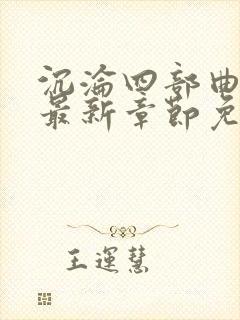 沉沦四部曲
最新章节免
王运慧